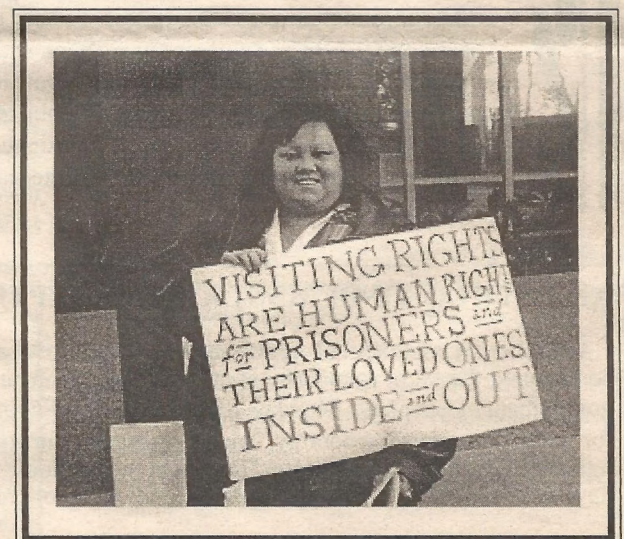 VISITING RIGHTS
ARE HUMAN RIGHTS
for PRISONERS and
THEIR LOVED ONES
INSIDE and OUT